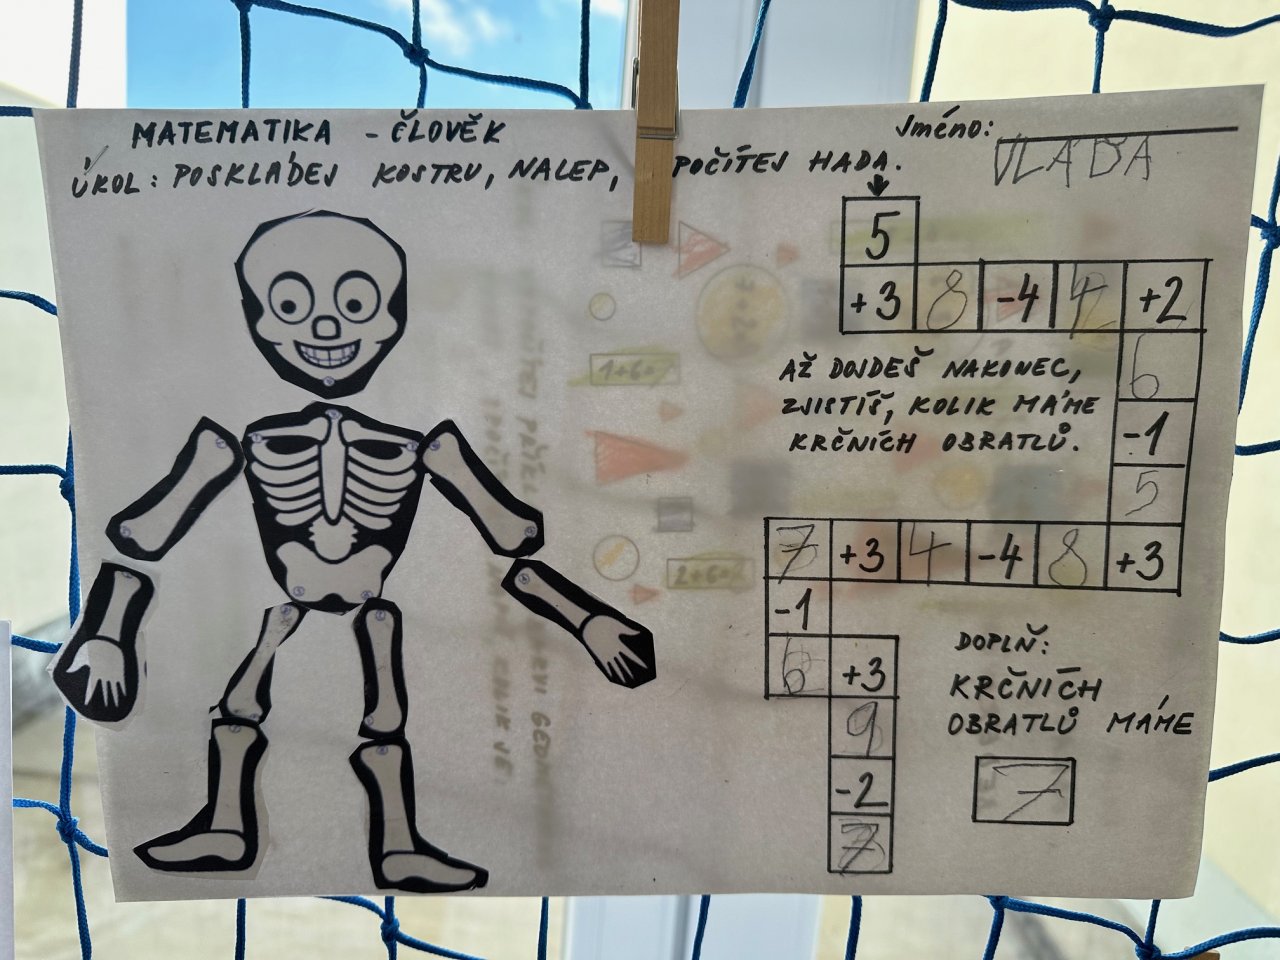 MATEMATIKA - ČLOVĚK
Jméno: VLÁĎA
ÚKOL: POSKLÁDEJ KOSTRU, NALEP, POČÍTEJ HADA.
5
+3 8 -4 4 +2
6
AŽ DOJDEŠ NAKONEC,
ZJISTÍŠ, KOLIK MÁME
KRČNÍCH OBRATLŮ.
-1
5
7 +3 4 -4 8 +3
-1
6 +3
9
-2
7
DOPLŇ:
KRČNÍCH
OBRATLŮ MÁME
7
1+6=7
2+6=